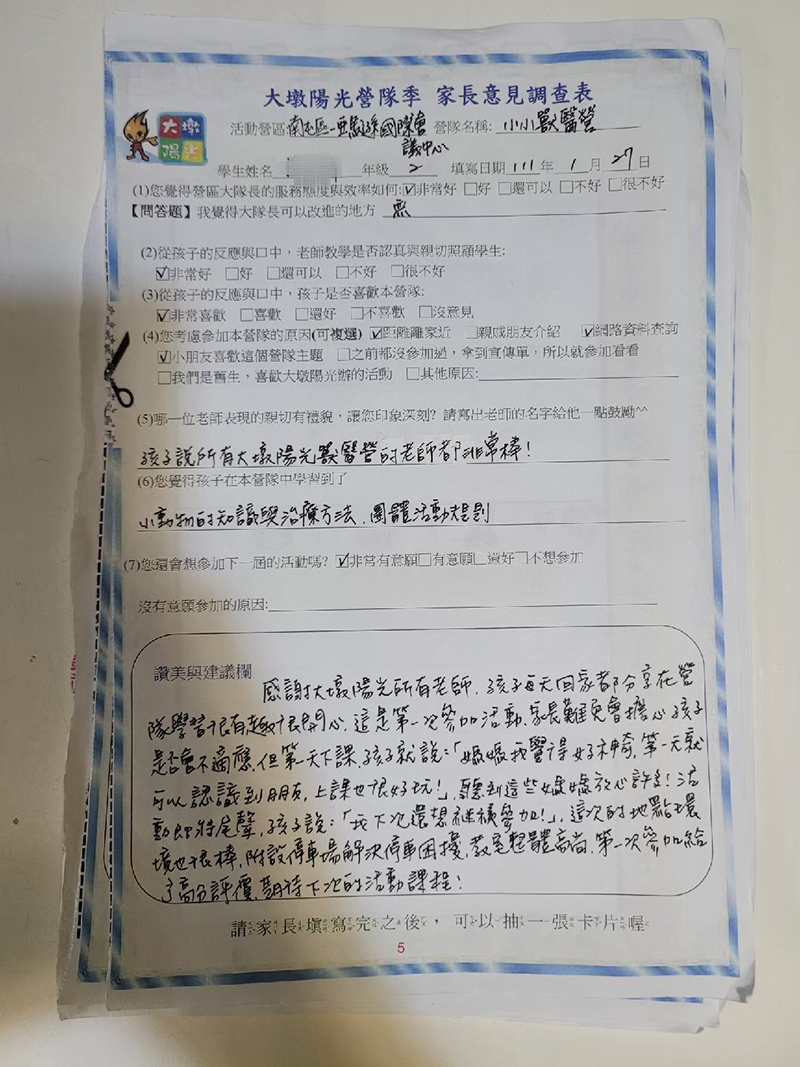 大墩陽光營隊季 家長意見調查表
大墩
陽光
活動營區 南屯區-亞緻國際會議中心 營隊名稱: 小小獸醫營
學生姓名 年級 2 填寫日期 111 年 1 月 27 日
(1)您覺得營區大隊長的服務態度與效率如何:☑非常好 □好 □還可以 □不好 □很不好
【問答題】我覺得大隊長可以改進的地方 無
(2)從孩子的反應與口中，老師教學是否認真與親切照顧學生:
☑非常好 □好 □還可以 □不好 □很不好
(3)從孩子的反應與口中，孩子是否喜歡本營隊:
☑非常喜歡 □喜歡 □還好 □不喜歡 □沒意見
(4)您考慮參加本營隊的原因(可複選) ☑距離離家近 □親戚朋友介紹 ☑網路資料查詢
☑小朋友喜歡這個營隊主題 □之前都沒參加過，拿到宣傳單，所以就參加看看
□我們是舊生，喜歡大墩陽光辦的活動 □其他原因:
(5)哪一位老師表現的親切有禮貌，讓您印象深刻? 請寫出老師的名字給他一點鼓勵^^
孩子說所有大墩陽光獸醫營的老師都非常棒!
(6)您覺得孩子在本營隊中學習到了
小動物的知識與治療方法,團體活動規則
(7)您還會想參加下一屆的活動嗎? ☑非常有意願□有意願□還好□不想參加
沒有意願參加的原因:
讚美與建議欄
感謝大墩陽光所有老師,孩子每天回家都分享在營
隊學習很有趣很開心,這是第一次參加活動,家長難免會擔心孩子
是否會不適應,但第一天下課,孩子就說:「媽媽我覺得好神奇,第一天就
可以認識到朋友,上課也很好玩!」,聽到這些媽媽放心許多!活
動即將尾聲,孩子說:「我下次還想繼續參加!」,這次的地點環
境也很棒,附設停車場解決停車困擾,教室整體高尚,第一次參加給
了高分評價,期待下次的活動課程!
請家長填寫完之後，可以抽一張卡片喔
5